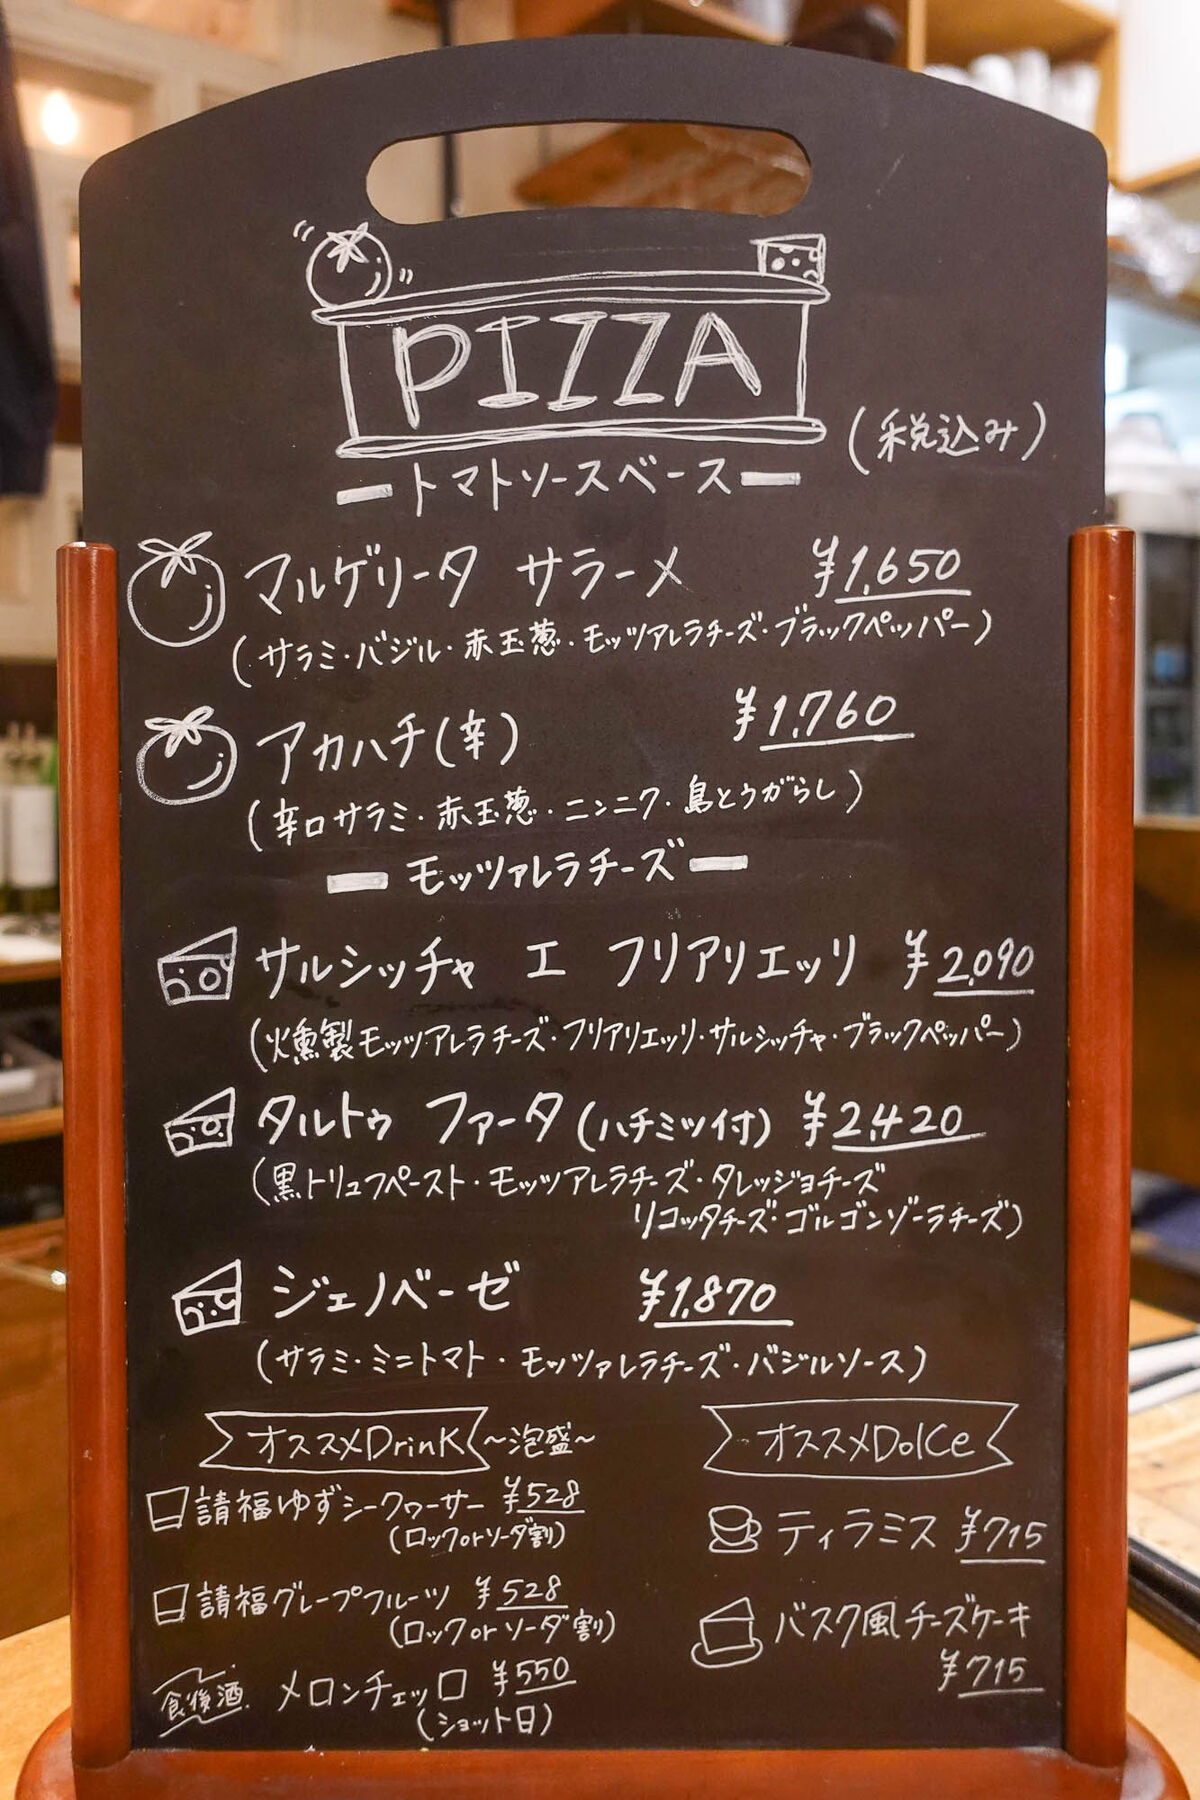 PIZZA
(税込み)
トマトソースベース
マルゲリータ サラーメ ¥1,650
(サラミ・バジル・赤玉葱・モッツアレラチーズ・ブラックペッパー)
アカハチ(辛) ¥1,760
(辛口サラミ・赤玉葱・ニンニク・島とうがらし)
モッツァレラチーズ
サルシッチャ エ フリアリエッリ ¥2,090
(燻製モッツアレラチーズ・フリアリエッリ・サルシッチャ・ブラックペッパー)
タルトゥ ファータ(ハチミツ付) ¥2,420
(黒トリュフペースト・モッツアレラチーズ・タレッジョチーズ
リコッタチーズ・ゴルゴンゾーラチーズ)
ジェノベーゼ ¥1,870
(サラミ・ミニトマト・モッツァレラチーズ・バジルソース)
オススメDrinK ~泡盛~
請福ゆずシークヮーサー ¥528
(ロックorソーダ割)
請福グレープフルーツ ¥528
(ロックorソーダ割)
食後酒 メロンチェッロ ¥550
(ショット日)
オススメDolCe
ティラミス ¥715
バスク風チーズケーキ
¥715